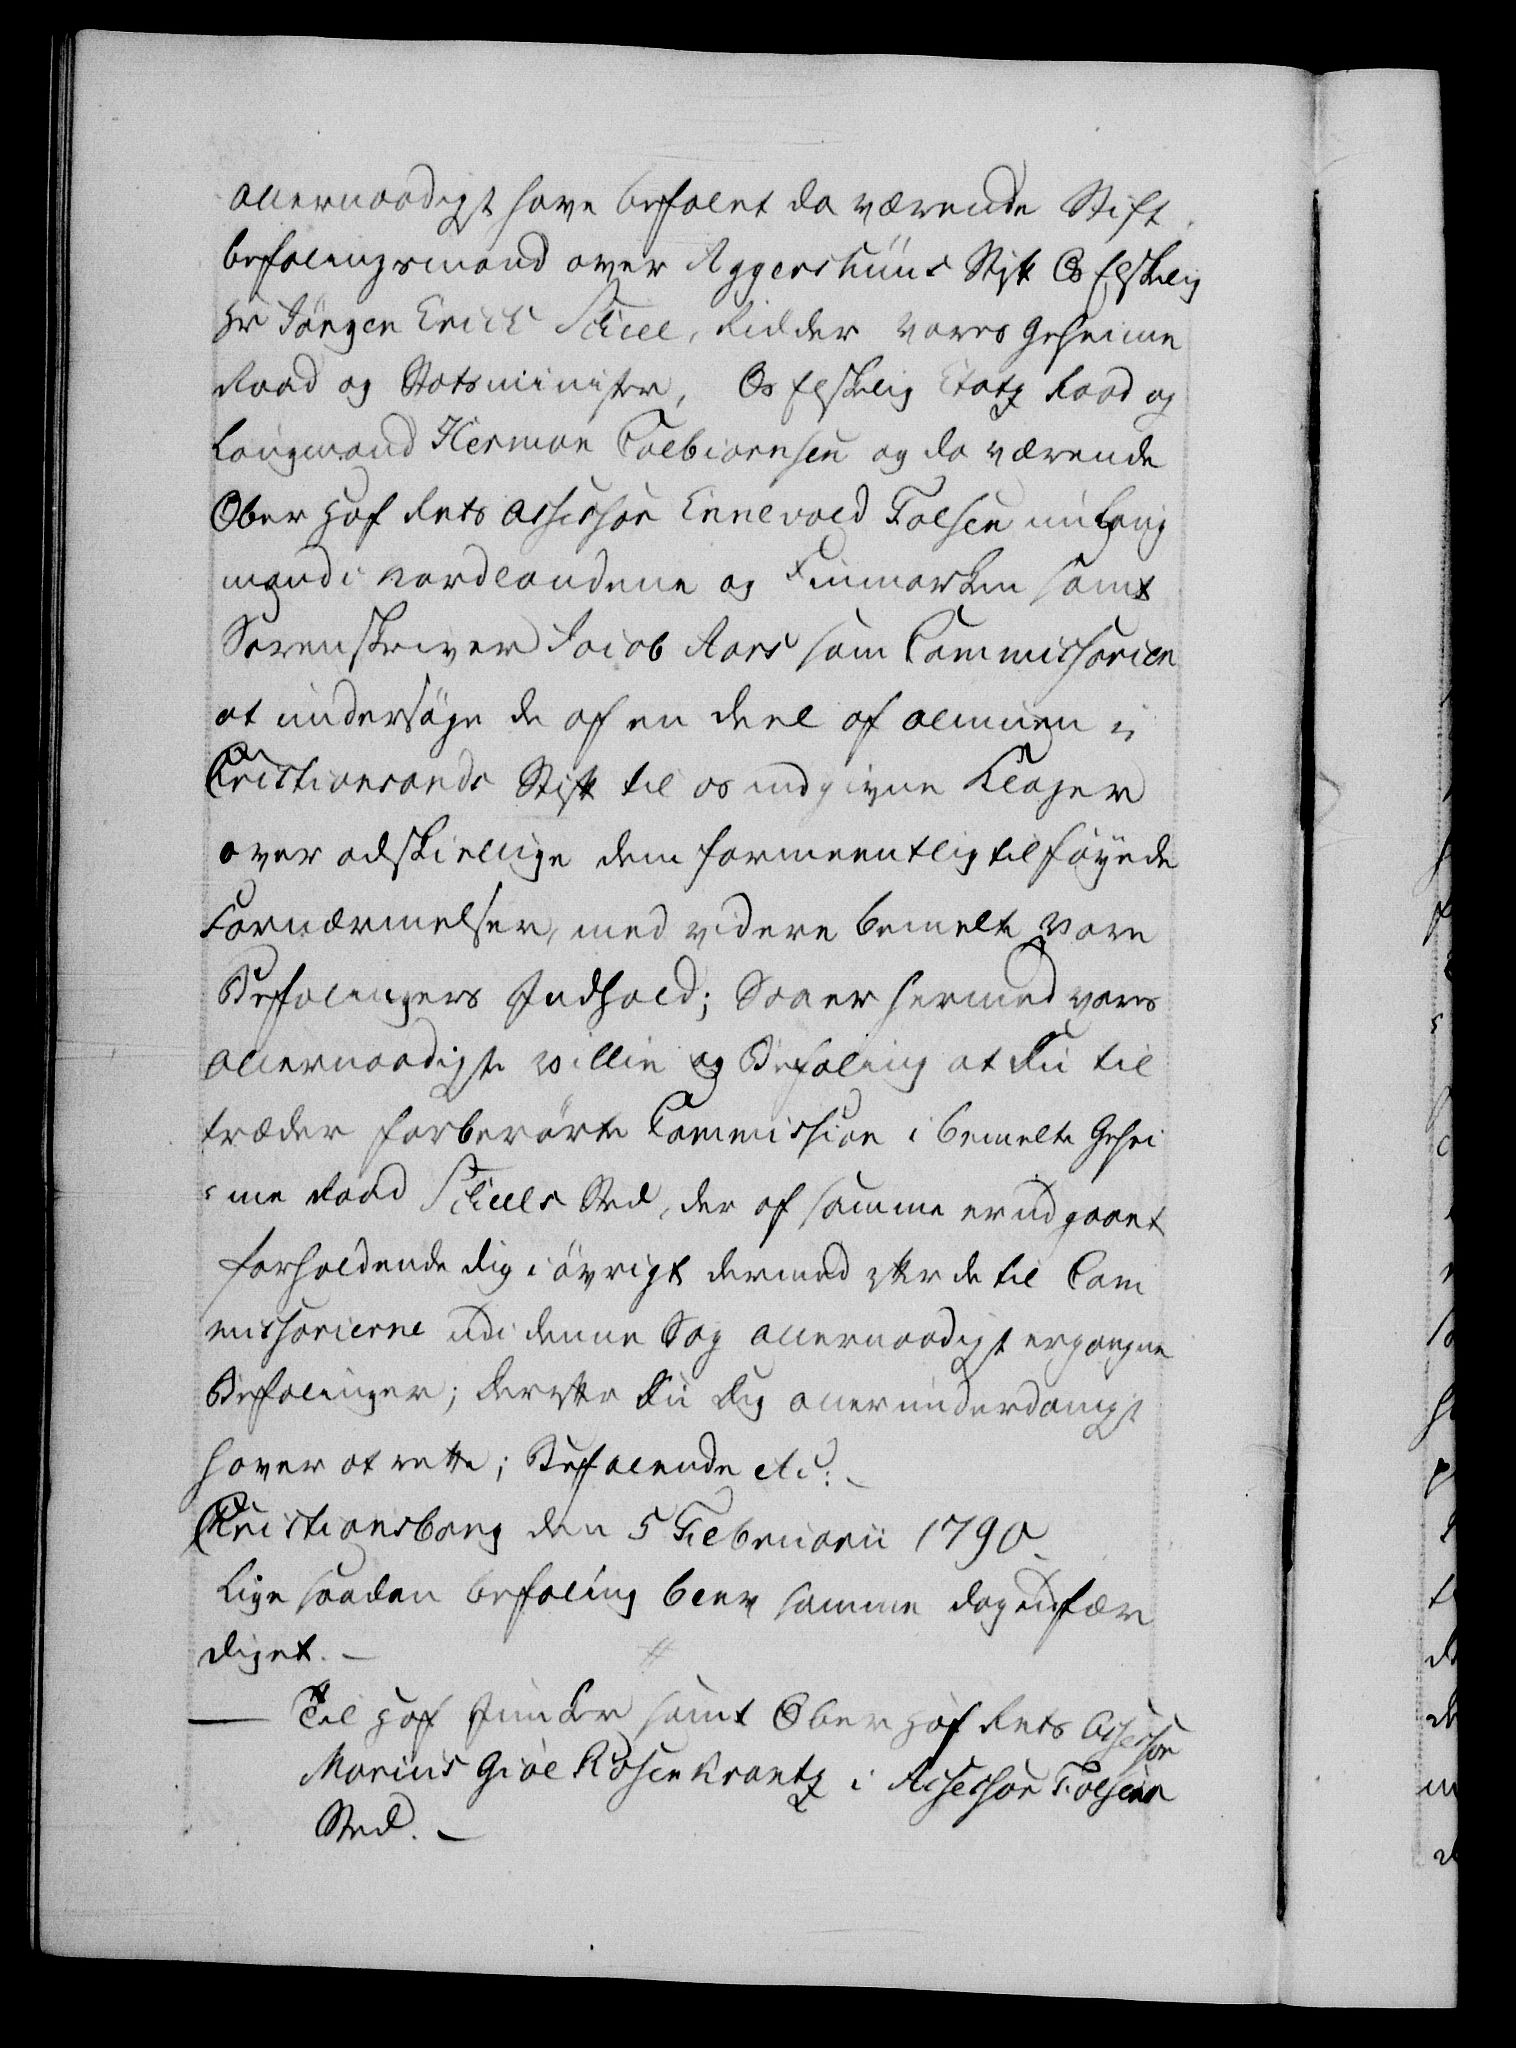 allernaadigst have befalet da værende Stift
befalingsmand over Aggershuus Stift Os Elskelig
Hr Jörgen Erich Scheel, Ridder vores Geheime
Raad og Statsminister, Os Elskelig Etatz Raad og
Laugmand Herman Colbiornsen og da værende
Ober Hof Rets Assessor Ennevold Falsen nu Laug
mand i Nordlandene og Finmarken samt
Sorenskriver Jacob Aars som Commissarier
at undersöge de af en deel af almuen i
Christiansands Stift til os indgivne Klager
over adskiellige dem formeentlig tilföyede
Fornærmelser, med videre bemelte vore
Befalingers Indhold; Saa er hermed vores
allernaadigste Villie og Befaling at Du til
træder forberörte Commission i bemelte Gehei
=me Raad Scheels Sted, der af samme er udgaaet
forholdende dig i övrigt dermed efter de til Com
missarierne udi denne Sag allernaadigst ergangne
Befalinger; derefter Du Dig allerunderdanigst
haver at rette; Befalende etc:
Christiansborg den 5 Februarii 1790
Lige saadan befaling blev samme dag udfær
diget. —
— Til Hof Junker samt Ober Hof Rets Assessor
Marius Giöe Rosenkrantz i Assessor Falsens
Sted. —